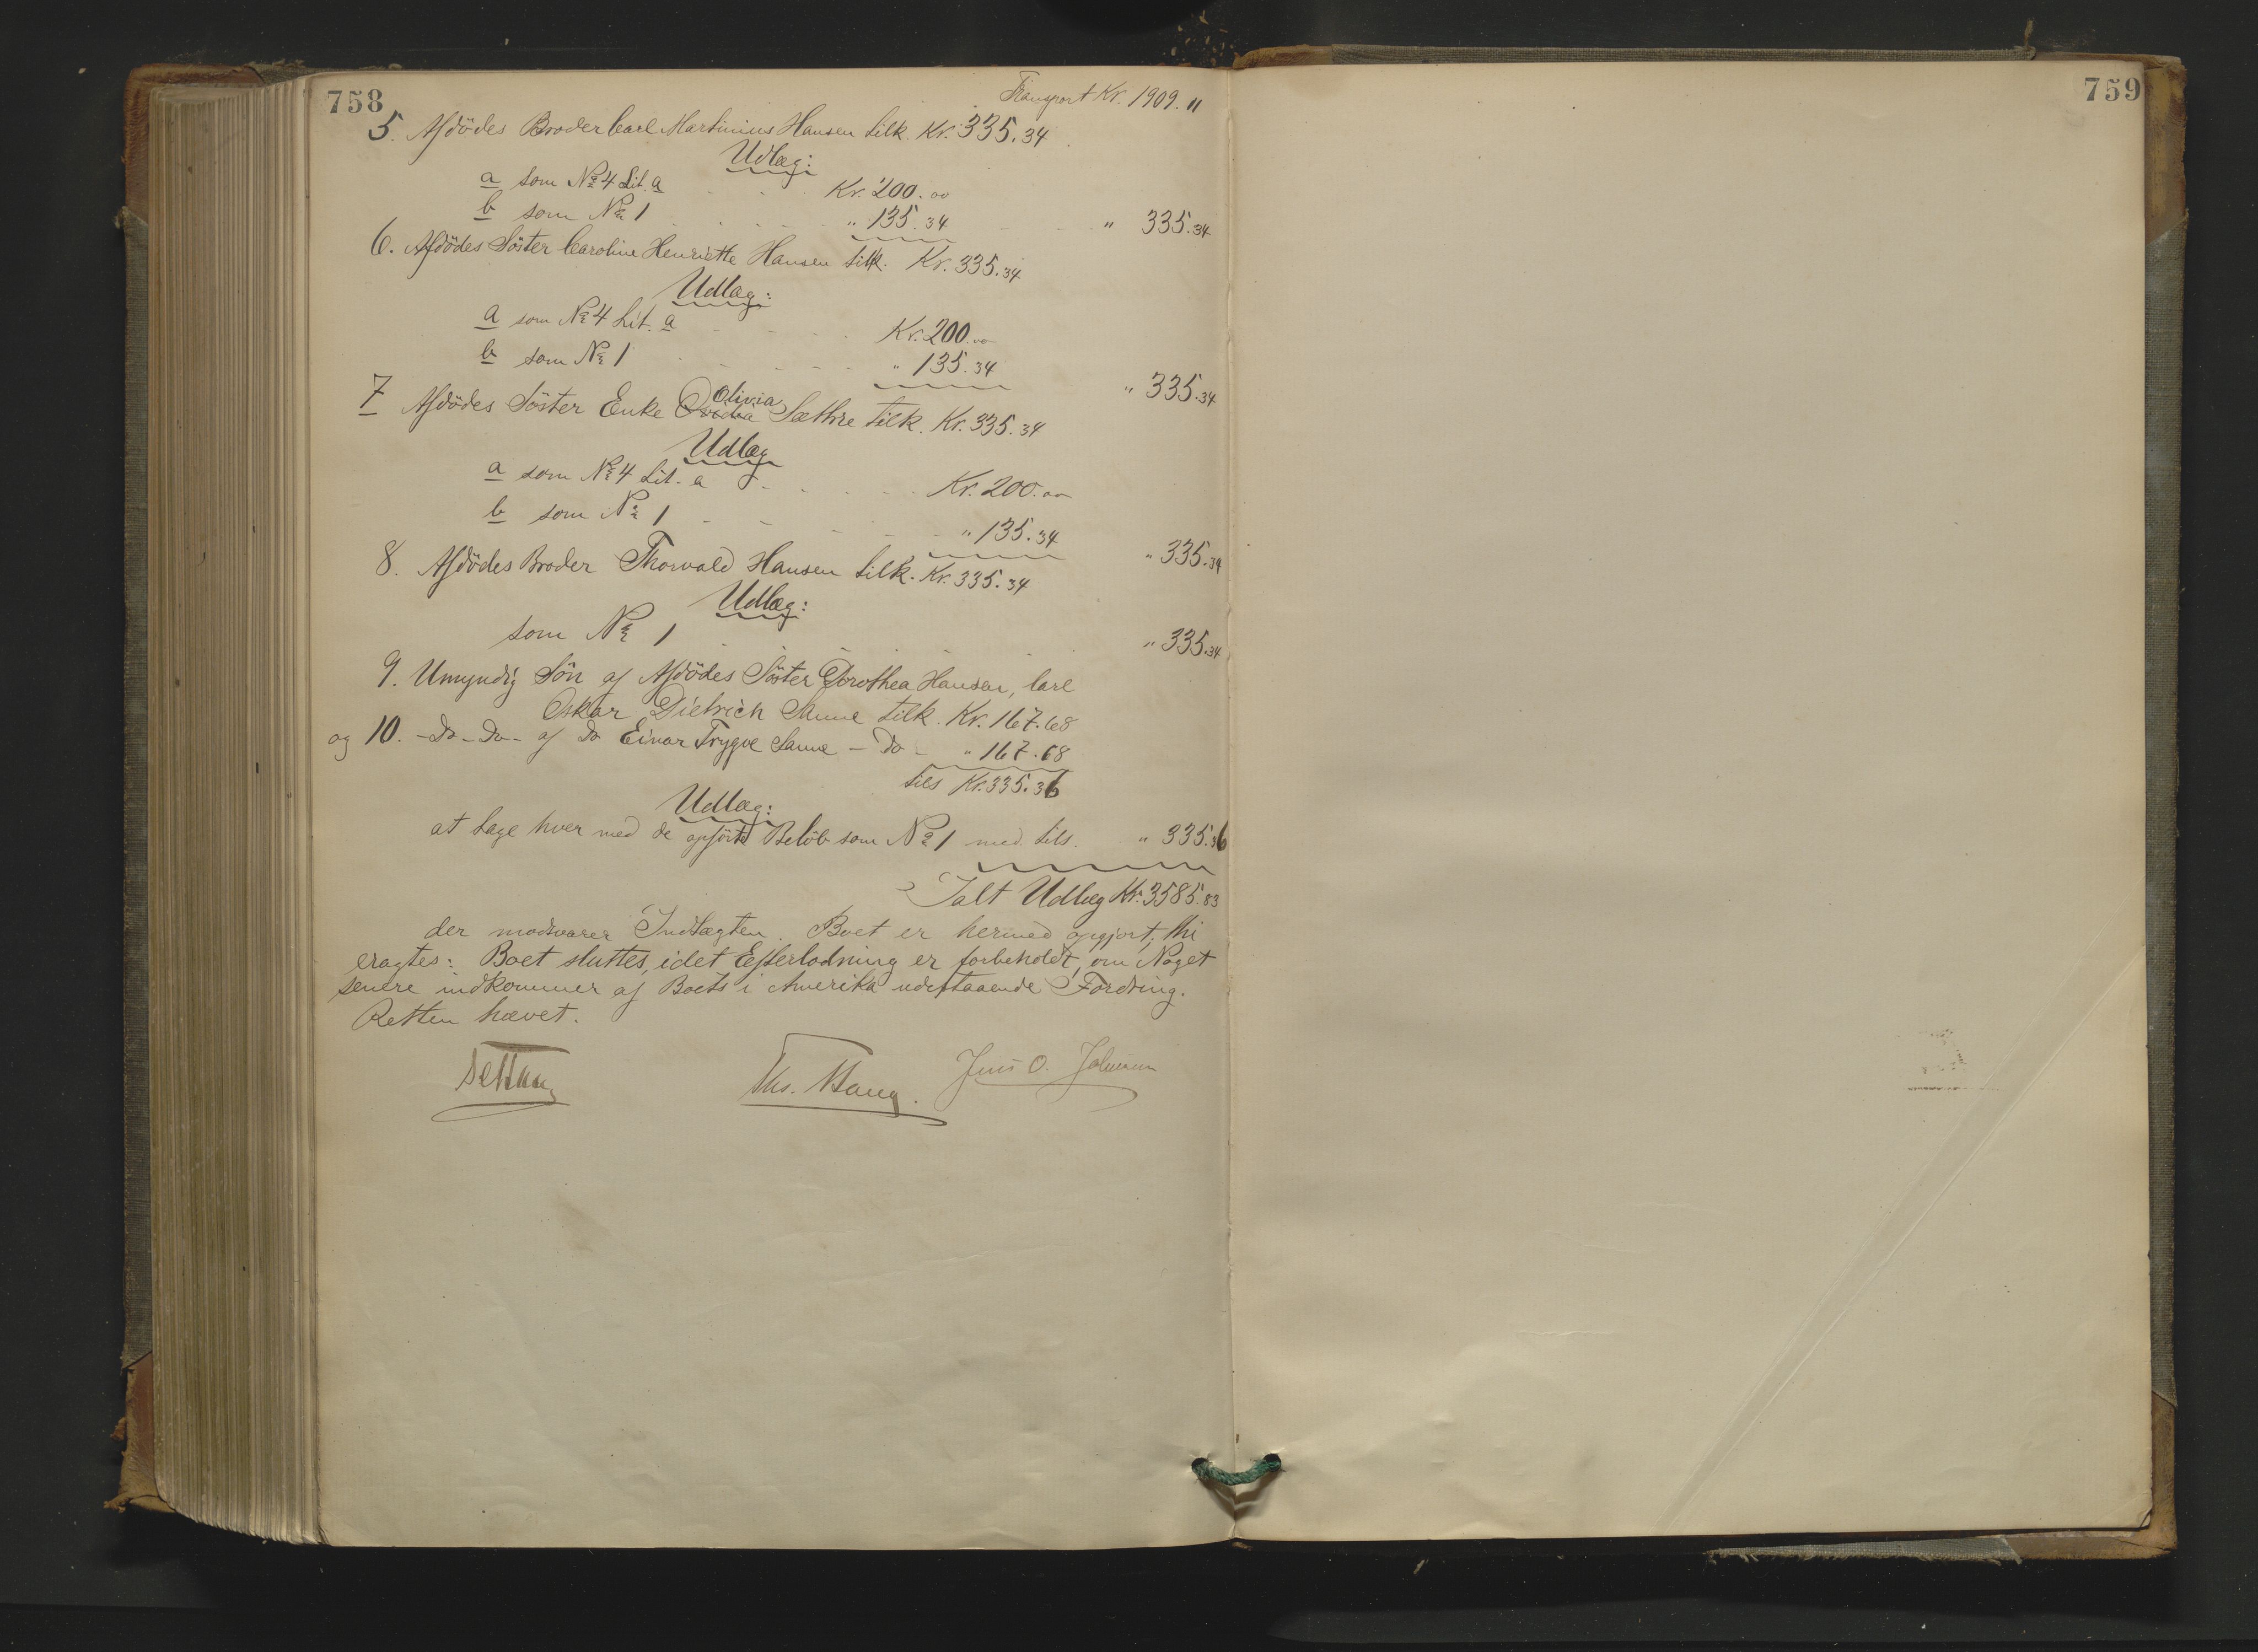 758
Transport Kr. 1909. 11
5. Afdödes Broder Carl Martinius Hansen tilk. Kr. 335.34
Udlæg:
a som No 4 Lit. a Kr. 200.00
b som No 1 " 135.34 " 335.34
6. Afdödes Söster Caroline Henriette Hansen tilk. Kr. 335.34
Udlæg:
a som No 4 Lit. a Kr. 200.00
b som No 1 " 135.34 " 335.34
7 Afdödes Söster Enke Olivia Sæthre tilk. Kr. 335.34
Udlæg
a som No 4 Lit. a Kr. 200.00
b som No 1 " 135.34 " 335.34
8. Afdödes Broder Thorvald Hansen tilk. Kr. 335.34
Udlæg:
som No 1 " 335.34
9. Umyndig Sön af Afdödes Söster Dorothea Hansen, Carl
Oskar Dietrich Sanne tilk. Kr. 167.68
og 10. -Do-Do- af Do Einar Trygve Sanne - Do - " 167.68
tils Kr. 335.36
Udlæg:
at tage hver med de opförte Belöb som No 1 med tils. " 335.36
Ialt Udlæg Kr. 3585.83
der modsvarer Indtægten. Boet er hermed opgjort, thi
eragtes: Boet sluttes, idet Efterlodning er forbeholdt, om Noget
senere indkommer af Boets i Amerika udestaaende Fordring.
Retten hævet.
Jens O. Johnsen
759